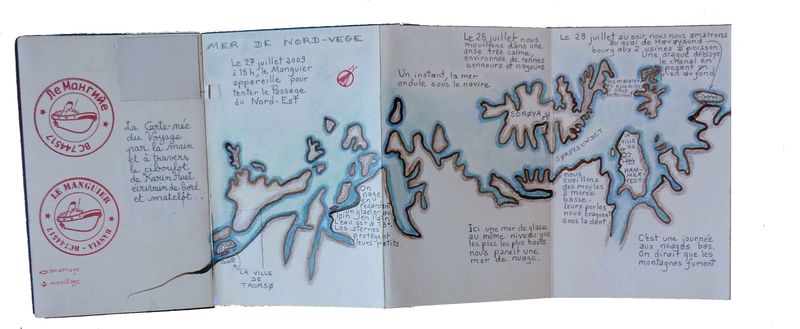 Ле Мангийе
BC744517
La Carte-née
du Voyage
par la main
et à travers
le ciboulot
de Karin Huet
écrivain de bord
et matelot...
LE MANGUIER
BC744517
amarrage
mouillage
MER DE NORD-VEGE
Le 27 juillet 2009
à 15h, le Manguier
appareille pour
tenter le Passage
du Nord-Est
On
nage
en
regardant
un glacier au
loin. L'eau
est à 13°.
Les sternes
protègent
leurs petits.
LA VILLE
DE
TROMSØ
Le 28 juillet nous
mouillons dans une
anse très calme,
environnée de rennes
sonneurs et nageurs
Un instant, la mer
ondule sous le navire
SORØYA
SØRØYSUNDET
Ici une mer de glace
au même niveau que
les pics les plus hauts
nous paraît une
mer de nuage.
Le 29 juillet au soir nous nous amarrons
au quai de Havøysund
bourg aux 2 usines à poisson
Une drague déblaye
le chenal en
posant un
pied au fond
LA
VILLE
DE
HAM-
MER-
FEST
nous
cueillons
des moules
à marée
basse
leurs perles
nous craquent
sous la dent.
C'est une journée
aux nuages bas.
On dirait que les
montagnes fument